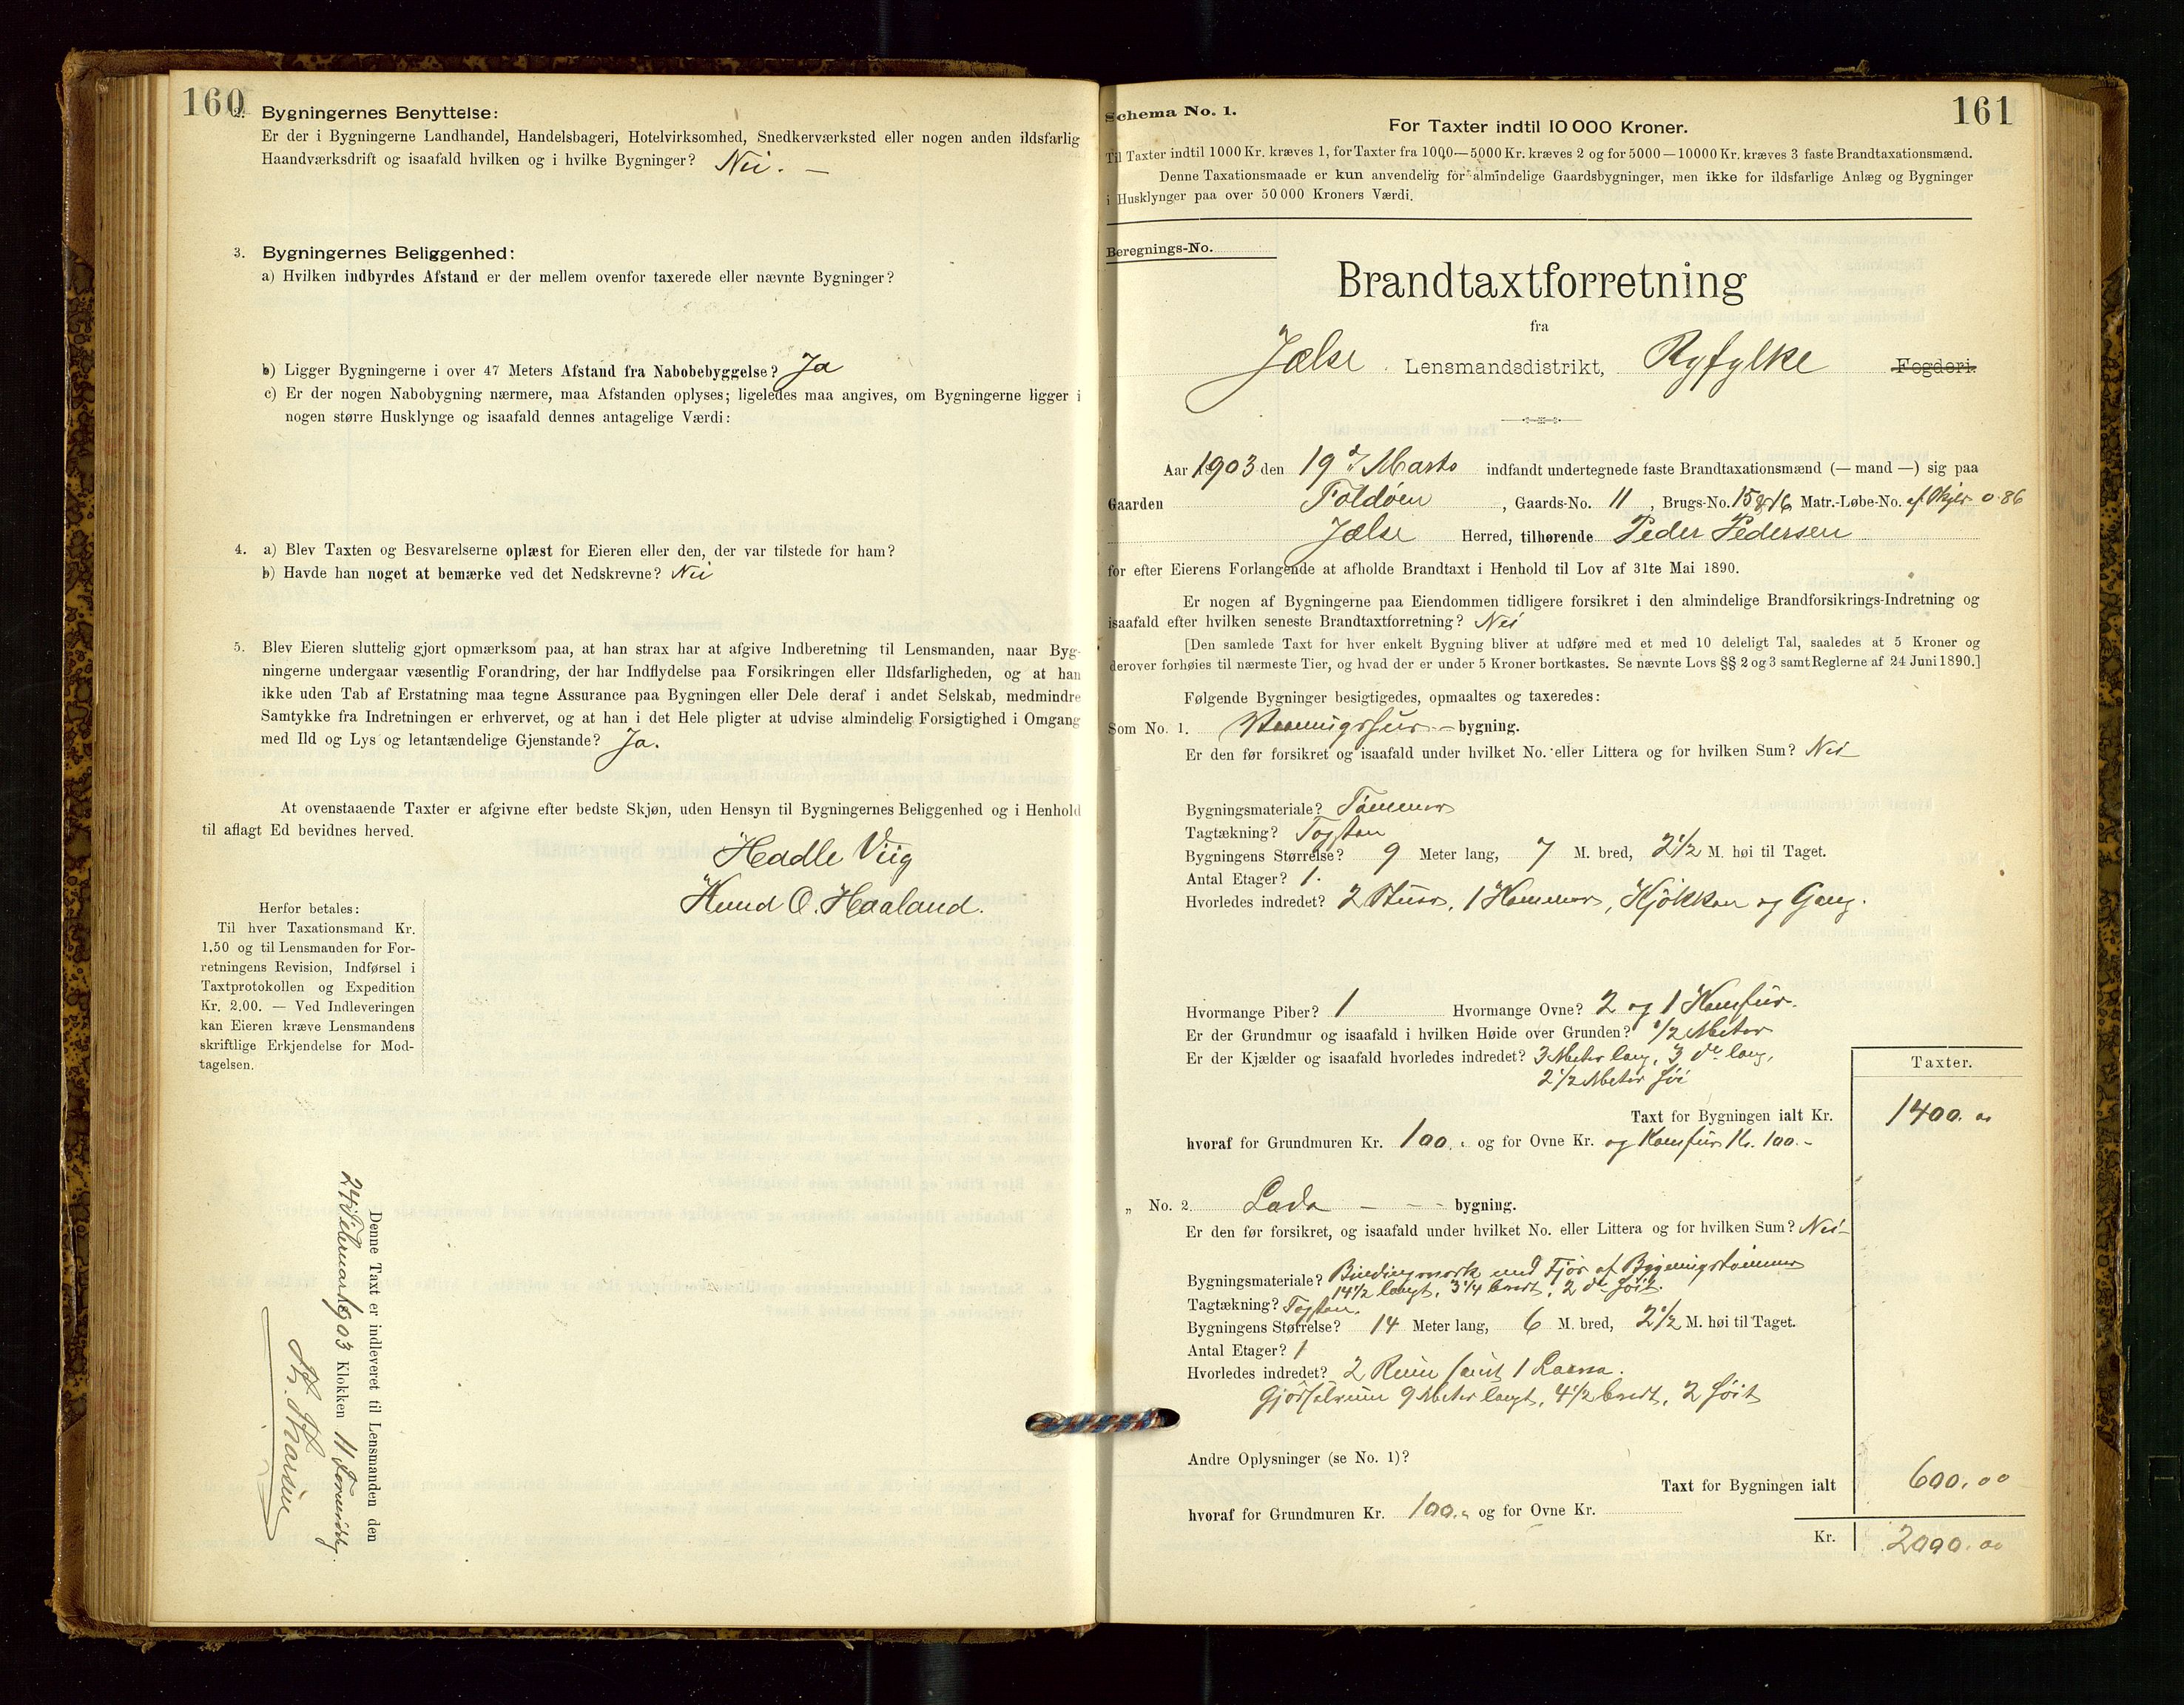 160
2. Bygningernes Benyttelse:
Er der i Bygningerne Landhandel, Handelsbageri, Hotelvirksomhed, Snedkerværksted eller nogen anden ildsfarlig
Haandværksdrift og isaafald hvilken og i hvilke Bygninger? Nei. —
3. Bygningernes Beliggenhed:
a) Hvilken indbyrdes Afstand er der mellem ovenfor taxerede eller nævnte Bygninger?
b) Ligger Bygningerne i over 47 Meters Afstand fra Nabobebyggelse? Ja
c) Er der nogen Nabobygning nærmere, maa Afstanden oplyses; ligeledes maa angives, om Bygningerne ligger i
nogen større Husklynge og isaafald dennes antagelige Værdi:
4. a) Blev Taxten og Besvarelserne oplæst for Eieren eller den, der var tilstede for ham?
b) Havde han noget at bemærke ved det Nedskrevne? Nei
5. Blev Eieren sluttelig gjort opmærksom paa, at han strax har at afgive Indberetning til Lensmanden, naar Byg-
ningerne undergaar væsentlig Forandring, der har Indflydelse paa Forsikringen eller Ildsfarligheden, og at han
ikke uden Tab af Erstatning maa tegne Assurance paa Bygningen eller Dele deraf i andet Selskab, medmindre
Samtykke fra Indretningen er erhvervet, og at han i det Hele pligter at udvise almindelig Forsigtighed i Omgang
med Ild og Lys og letantændelige Gjenstande? Ja.
At ovenstaaende Taxter er afgivne efter bedste Skjøn, uden Hensyn til Bygningernes Beliggenhed og i Henhold
til aflagt Ed bevidnes herved.
Hadle Viig
Knud O. Haaland.
Herfor betales:
Til hver Taxationsmand Kr.
1.50 og til Lensmanden for For-
retningens Revision, Indførsel i
Taxtprotokollen og Expedition
Kr. 2.00. — Ved Indleveringen
kan Eieren kræve Lensmandens
skriftlige Erkjendelse for Mod-
tagelsen.
Denne Taxt er indleveret til Lensmanden den
24 Februar 1903 Klokken 11 Formiddg.
161
Schema No. 1.
For Taxter indtil 10 000 Kroner.
Til Taxter indtil 1000 Kr. kræves 1, for Taxter fra 1000—5000 Kr. kræves 2 og for 5000—10000 Kr. kræves 3 faste Brandtaxationsmænd.
Denne Taxationsmaade er kun anvendelig for almindelige Gaardsbygninger, men ikke for ildsfarlige Anlæg og Bygninger
i Husklynger paa over 50 000 Kroners Værdi.
Beregnings-No.
Brandtaxtforretning
fra
Jælse Lensmandsdistrikt, Ryfylke Fogderi.
Aar 1903 den 19de Marts indfandt undertegnede faste Brandtaxationsmænd (— mand —) sig paa
Gaarden Foldøen, Gaards-No. 11, Brugs-No. 15 & 16 Matr.-Løbe-No. af Skyld 0.86
Jælse Herred, tilhørende Peder Pedersen
for efter Eierens Forlangende at afholde Brandtaxt i Henhold til Lov af 31te Mai 1890.
Er nogen af Bygningerne paa Eiendommen tidligere forsikret i den almindelige Brandforsikrings-Indretning og
isaafald efter hvilken seneste Brandtaxtforretning? Nei
[Den samlede Taxt for hver enkelt Bygning bliver at udføre med et med 10 deleligt Tal, saaledes at 5 Kroner og
derover forhøies til nærmeste Tier, og hvad der er under 5 Kroner bortkastes. Se nævnte Lovs §§ 2 og 3 samt Reglerne af 24 Juni 1890.]
Følgende Bygninger besigtigedes, opmaaltes og taxeredes:
Som No. 1. Vaaningshus — bygning.
Er den før forsikret og isaafald under hvilket No. eller Littera og for hvilken Sum? Nei
Bygningsmateriale? Tømmer
Tagtækning? Tagsten
Bygningens Størrelse? 9 Meter lang, 7 M. bred, 2 1/2 M. høi til Taget.
Antal Etager? 1.
Hvorledes indredet? 2 Stuer, 1 Kammer, Kjøkken og Gang.
Hvormange Piber? 1 Hvormange Ovne? 2 og 1 Komfur.
Er der Grundmur og isaafald i hvilken Høide over Grunden? 1/2 Meter
Er der Kjælder og isaafald hvorledes indredet? 3 Meter lang, 3 do lang,
2 1/2 Meter høi
Taxter.
Taxt for Bygningen ialt Kr. 1400. 00
hvoraf for Grundmuren Kr. 100. - og for Ovne Kr. og Komfur Kr. 100. -
„ No. 2. Lada — - - bygning.
Er den før forsikret, og isaafald under hvilket No. eller Littera og for hvilken Sum? Nei-
Bygningsmateriale? Bindingsværk med Fjøs af Bygningstømmer
14 1/2 langt, 3 1/4 bredt, 2 do høit.
Tagtækning? Tagsten.
Bygningens Størrelse? 14 Meter lang, 6 M. bred, 2 1/2 M. høi til Taget.
Antal Etager? 1
Hvorledes indredet? 2 Rum samt 1
9 Meter langt, 4 1/2 bredt, 2 høit
Andre Oplysninger (se No. 1)?
Taxt for Bygningen ialt 600. 00
hvoraf for Grundmuren Kr. 100. - og for Ovne Kr.
Kr. 2000. 00